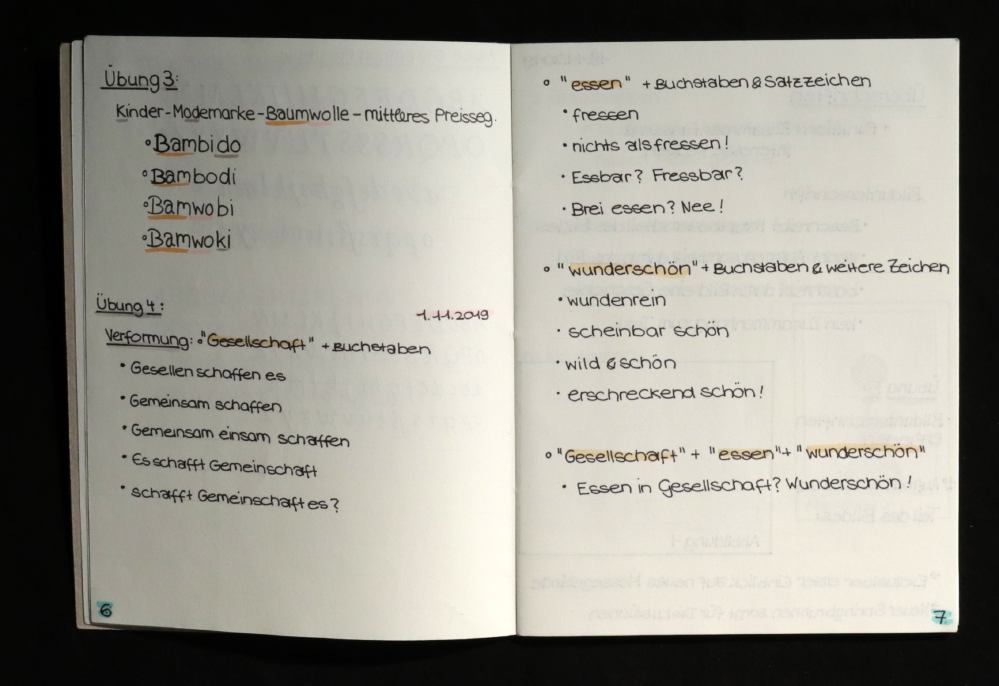 Übung 3:
Kinder-Modemarke-Baumwolle-mittleres Preisseg.
Bambido
Bambodi
Bamwobi
Bamwoki
Übung 4:
1.11.2019
Verformung: "Gesellschaft" + Buchstaben
Gesellen schaffen es
Gemeinsam schaffen
Gemeinsam einsam schaffen
Es schafft Gemeinschaft
schafft Gemeinschaft es?
6
"essen" + Buchstaben & Satzzeichen
fressen
nichts als fressen!
Essbar? Fressbar?
Brei essen? Nee!
"wunderschön" + Buchstaben & weitere Zeichen
wundenrein
scheinbar schön
wild & schön
erschreckend schön!
"Gesellschaft" + "essen" + "wunderschön"
Essen in Gesellschaft? Wunderschön!
7